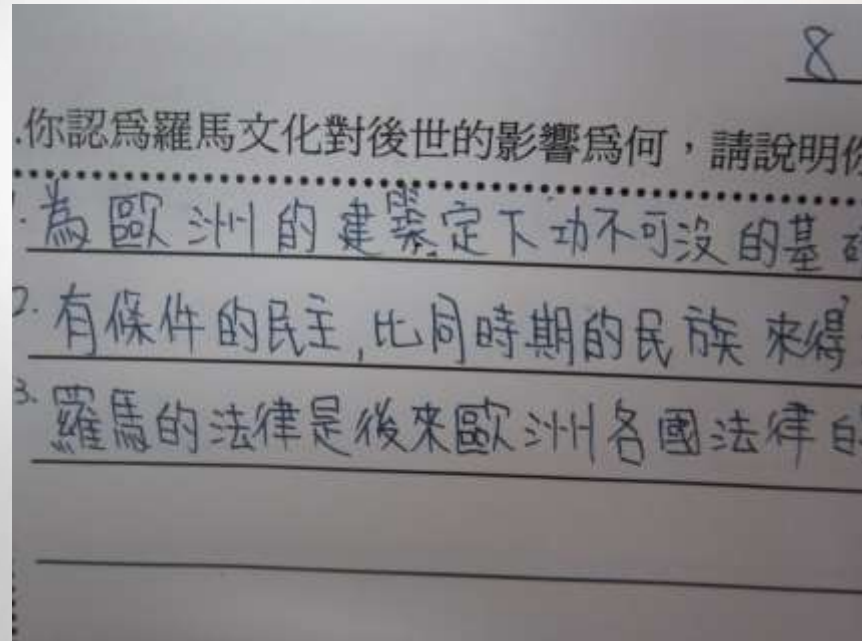 8
.你認為羅馬文化對後世的影響為何，請說明你
1.為歐洲的建築定下功不可沒的基
2.有條件的民主,比同時期的民族來得
3.羅馬的法律是後來歐洲各國法律